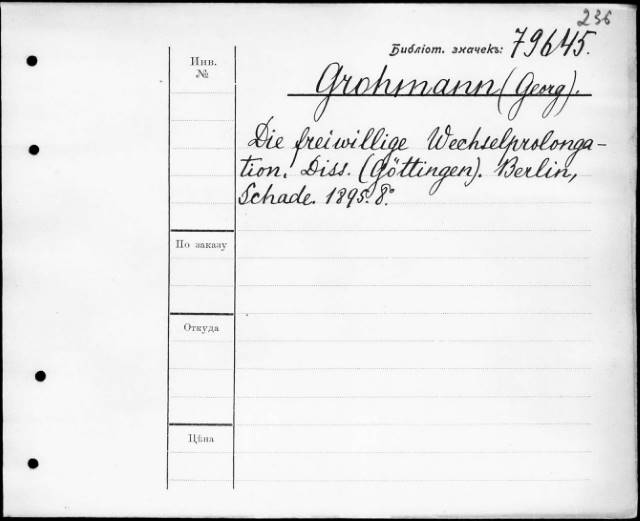 236
Библіот. значекъ: 79645.
Инв.
№
Grohmann (Georg).
Die freiwillige Wechselprolonga-
tion. Diss. (Göttingen). Berlin,
Schade. 1895. 8°.
По заказу
Откуда
Цѣна